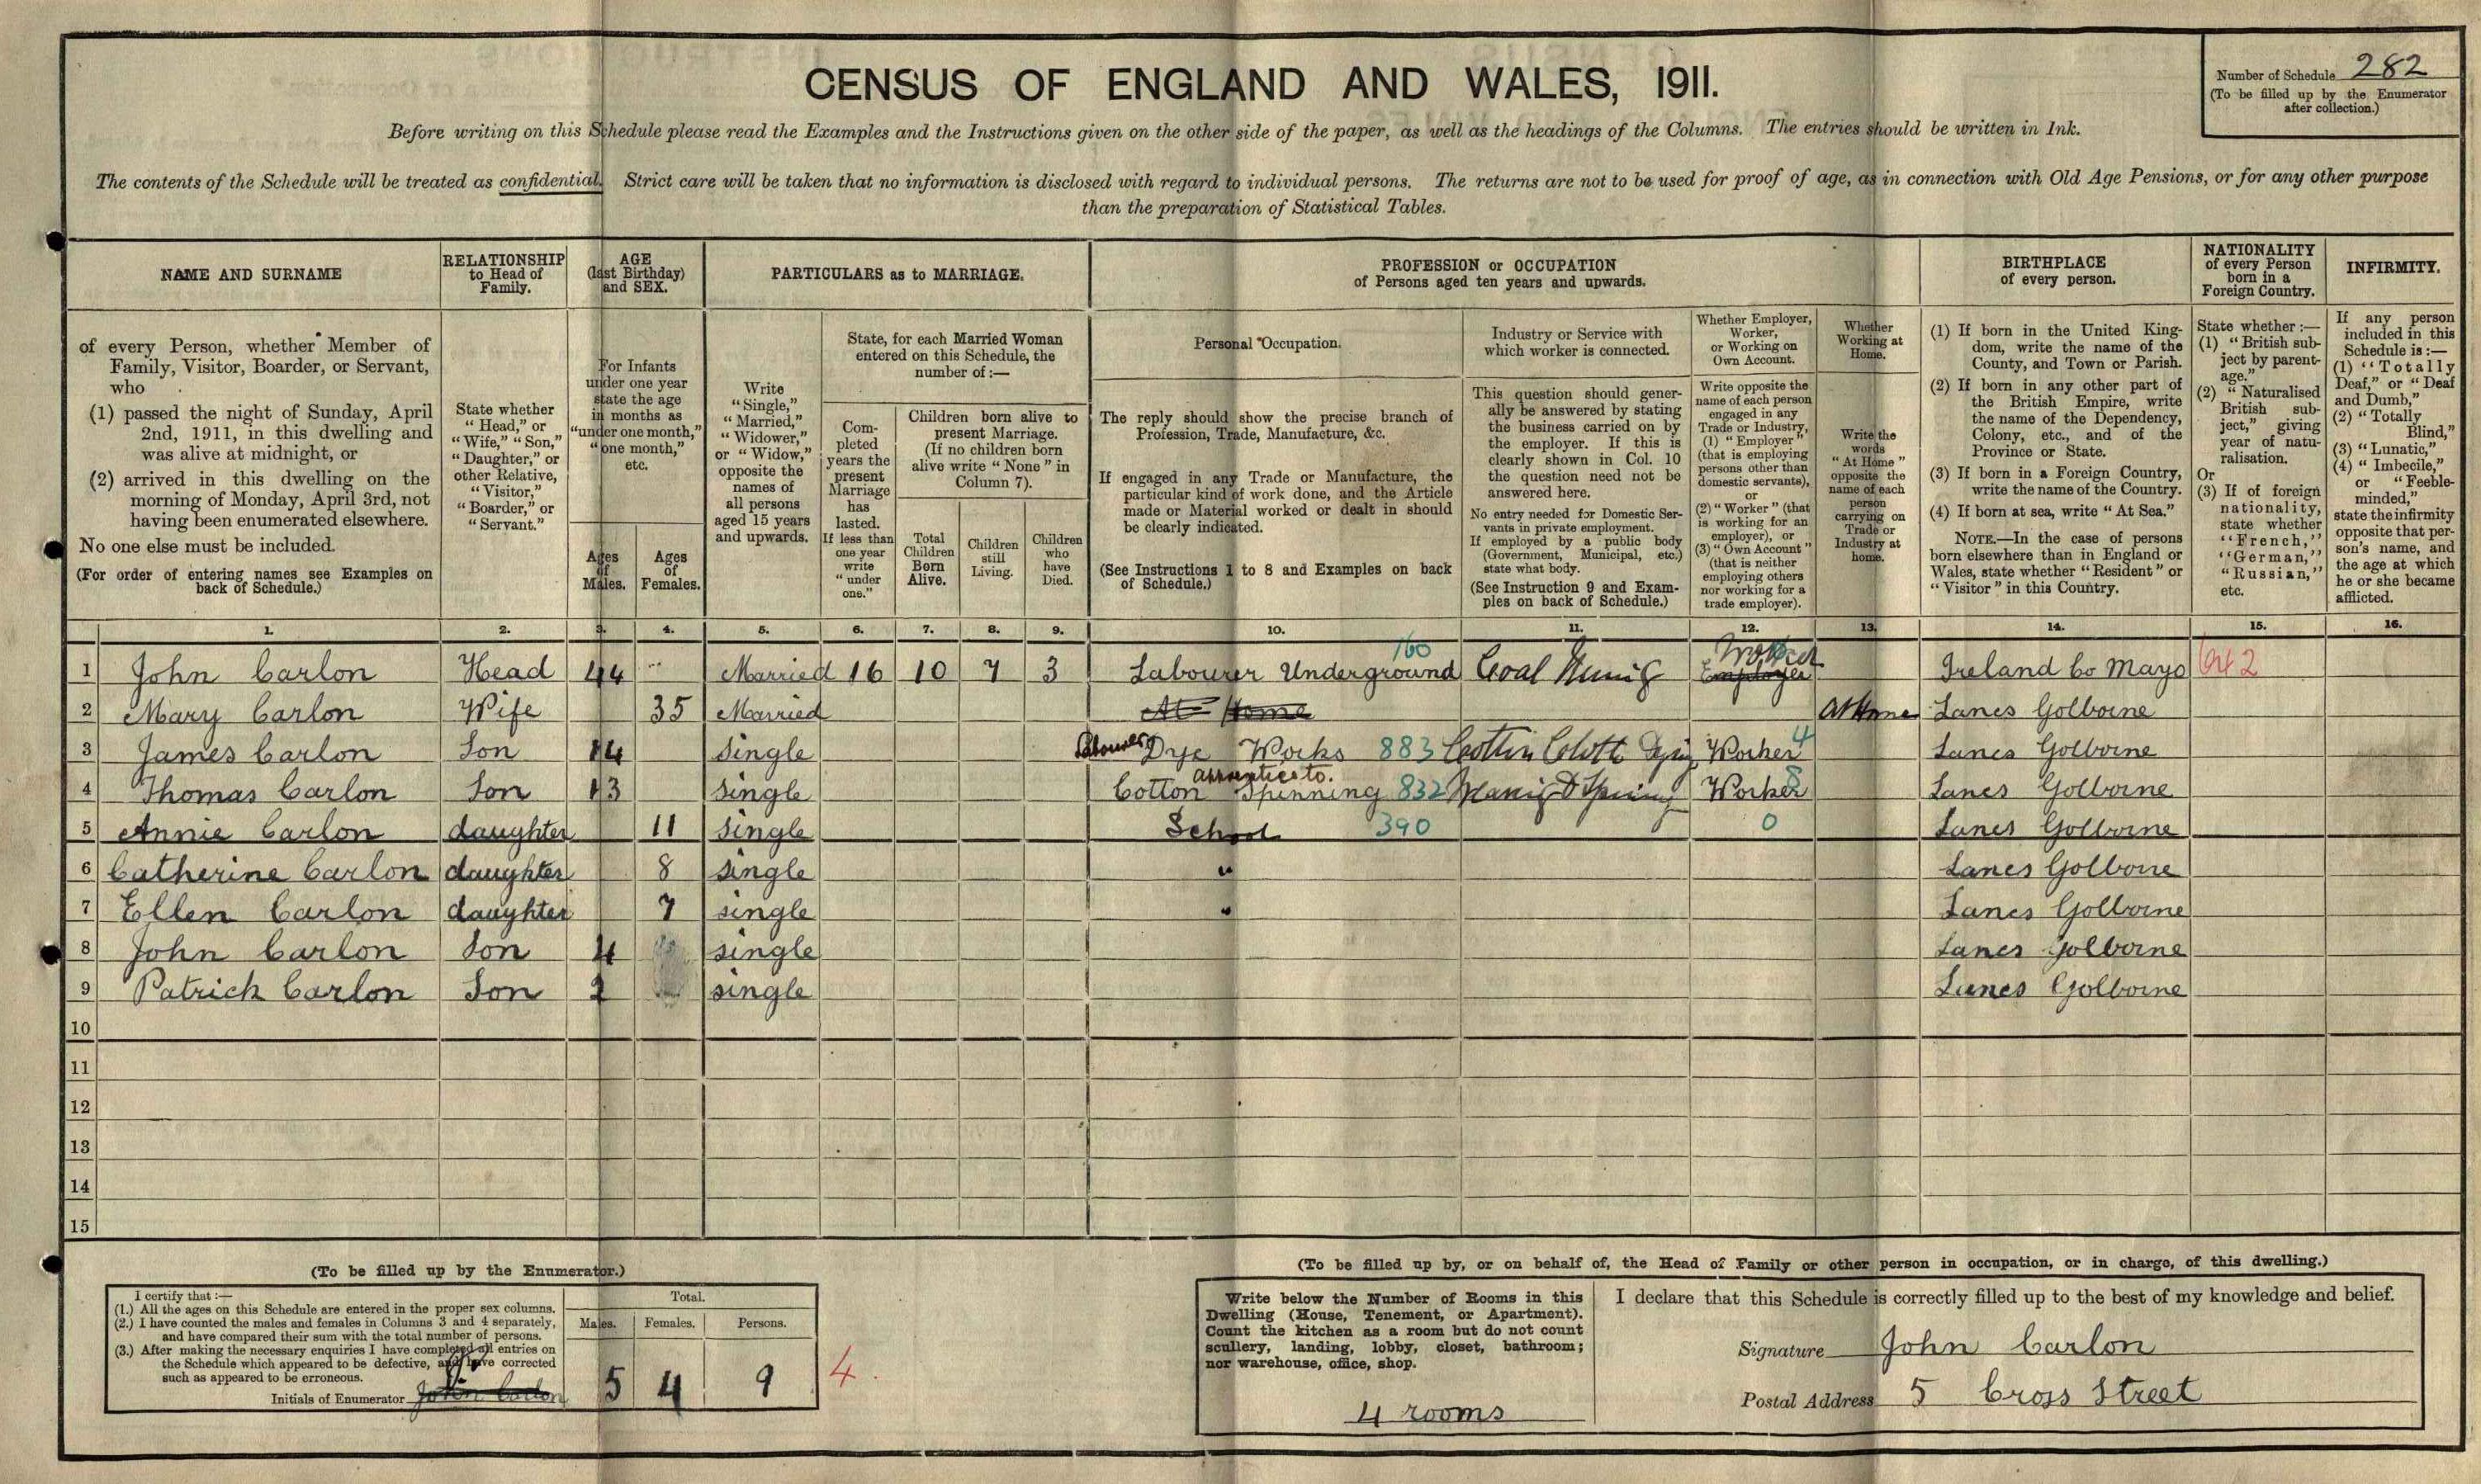 CENSUS OF ENGLAND AND WALES, 1911.
Number of Schedule 282
(To be filled up by the Enumerator after collection.)
Before writing on this Schedule please read the Examples and the Instructions given on the other side of the paper, as well as the headings of the Columns. The entries should be written in Ink.
The contents of the Schedule will be treated as confidential. Strict care will be taken that no information is disclosed with regard to individual persons. The returns are not to be used for proof of age, as in connection with Old Age Pensions, or for any other purpose
than the preparation of Statistical Tables.
NAME AND SURNAME
of every Person, whether Member of
Family, Visitor, Boarder, or Servant,
who
(1) passed the night of Sunday, April
2nd, 1911, in this dwelling and
was alive at midnight, or
(2) arrived in this dwelling on the
morning of Monday, April 3rd, not
having been enumerated elsewhere.
No one else must be included.
(For order of entering names see Examples on
back of Schedule.)
RELATIONSHIP
to Head of
Family.
State whether
"Head," or
"Wife," "Son,"
"Daughter," or
other Relative,
"Visitor,"
"Boarder," or
"Servant."
AGE
(last Birthday)
and SEX.
For Infants
under one year
state the age
in months as
"under one month,"
"one month,"
etc.
Ages
of
Males.
Ages
of
Females.
PARTICULARS as to MARRIAGE.
Write
"Single,"
"Married,"
"Widower,"
or "Widow,"
opposite the
names of
all persons
aged 15 years
and upwards.
State, for each Married Woman
entered on this Schedule, the
number of:—
Com-
pleted
years the
present
Marriage
has
lasted.
If less than
one year
write
"under
one."
Children born alive to
present Marriage.
(If no children born
alive write "None" in
Column 7).
Total
Children
Born
Alive.
Children
still
Living.
Children
who
have
Died.
PROFESSION or OCCUPATION
of Persons aged ten years and upwards.
Personal Occupation.
The reply should show the precise branch of
Profession, Trade, Manufacture, &c.
If engaged in any Trade or Manufacture, the
particular kind of work done, and the Article
made or Material worked or dealt in should
be clearly indicated.
(See Instructions 1 to 8 and Examples on back
of Schedule.)
Industry or Service with
which worker is connected.
This question should gener-
ally be answered by stating
the business carried on by
the employer. If this is
clearly shown in Col. 10
the question need not be
answered here.
No entry needed for Domestic Ser-
vants in private employment.
If employed by a public body
(Government, Municipal, etc.)
state what body.
(See Instruction 9 and Exam-
ples on back of Schedule.)
Whether Employer,
Worker,
or Working on
Own Account.
Write opposite the
name of each person
engaged in any
Trade or Industry,
(1) "Employer"
(that is employing
persons other than
domestic servants),
or
(2) "Worker" (that
is working for an
employer), or
(3) "Own Account"
(that is neither
employing others
nor working for a
trade employer).
Whether
Working at
Home.
Write the
words
"At Home"
opposite the
name of each
person
carrying on
Trade or
Industry at
home.
BIRTHPLACE
of every person.
(1) If born in the United King-
dom, write the name of the
County, and Town or Parish.
(2) If born in any other part of
the British Empire, write
the name of the Dependency,
Colony, etc., and of the
Province or State.
(3) If born in a Foreign Country,
write the name of the Country.
(4) If born at sea, write "At Sea."
NOTE.—In the case of persons
born elsewhere than in England or
Wales, state whether "Resident" or
"Visitor" in this Country.
NATIONALITY
of every Person
born in a
Foreign Country.
State whether:—
(1) "British sub-
ject by parent-
age."
(2) "Naturalised
British sub-
ject," giving
year of natu-
ralisation.
Or
(3) If of foreign
nationality,
state whether
"French,"
"German,"
"Russian,"
etc.
INFIRMITY.
If any person
included in this
Schedule is:—
(1) "Totally
Deaf," or "Deaf
and Dumb,"
(2) "Totally
Blind,"
(3) "Lunatic,"
(4) "Imbecile,"
or "Feeble-
minded,"
state the infirmity
opposite that per-
son's name, and
the age at which
he or she became
afflicted.
1. 2. 3. 4. 5. 6. 7. 8. 9. 10. 11. 12. 13. 14. 15. 16.
1 John Carlon Head 44 Married 16 10 7 3 Labourer Underground 160 Coal Worker Employer Ireland Co Mayo
2 Mary Carlon Wife 35 Married At Home At Home Lancs Golborne
3 James Carlon Son 14 single Labourer Dye Works 883 Cotton Cloth Worker 4 Lancs Golborne
4 Thomas Carlon Son 13 single Cotton apprentice to Spinning 832 Worker 8 Lancs Golborne
5 Annie Carlon daughter 11 single School 390 0 Lancs Golborne
6 Catherine Carlon daughter 8 single " Lancs Golborne
7 Ellen Carlon daughter 7 single " Lancs Golborne
8 John Carlon Son 4 single Lancs Golborne
9 Patrick Carlon Son 2 single Lancs Golborne
10
11
12
13
14
15
(To be filled up by the Enumerator.)
I certify that:—
(1.) All the ages on this Schedule are entered in the proper sex columns.
(2.) I have counted the males and females in Columns 3 and 4 separately,
and have compared their sum with the total number of persons.
(3.) After making the necessary enquiries I have completed all entries on
the Schedule which appeared to be defective, and have corrected
such as appeared to be erroneous.
Initials of Enumerator John Carlon
Total.
Males. Females. Persons.
5 4 9 4.
(To be filled up by, or on behalf of, the Head of Family or other person in occupation, or in charge, of this dwelling.)
Write below the Number of Rooms in this
Dwelling (House, Tenement, or Apartment).
Count the kitchen as a room but do not count
scullery, landing, lobby, closet, bathroom;
nor warehouse, office, shop.
4 rooms
I declare that this Schedule is correctly filled up to the best of my knowledge and belief.
Signature John Carlon
Postal Address 5 Cross Street